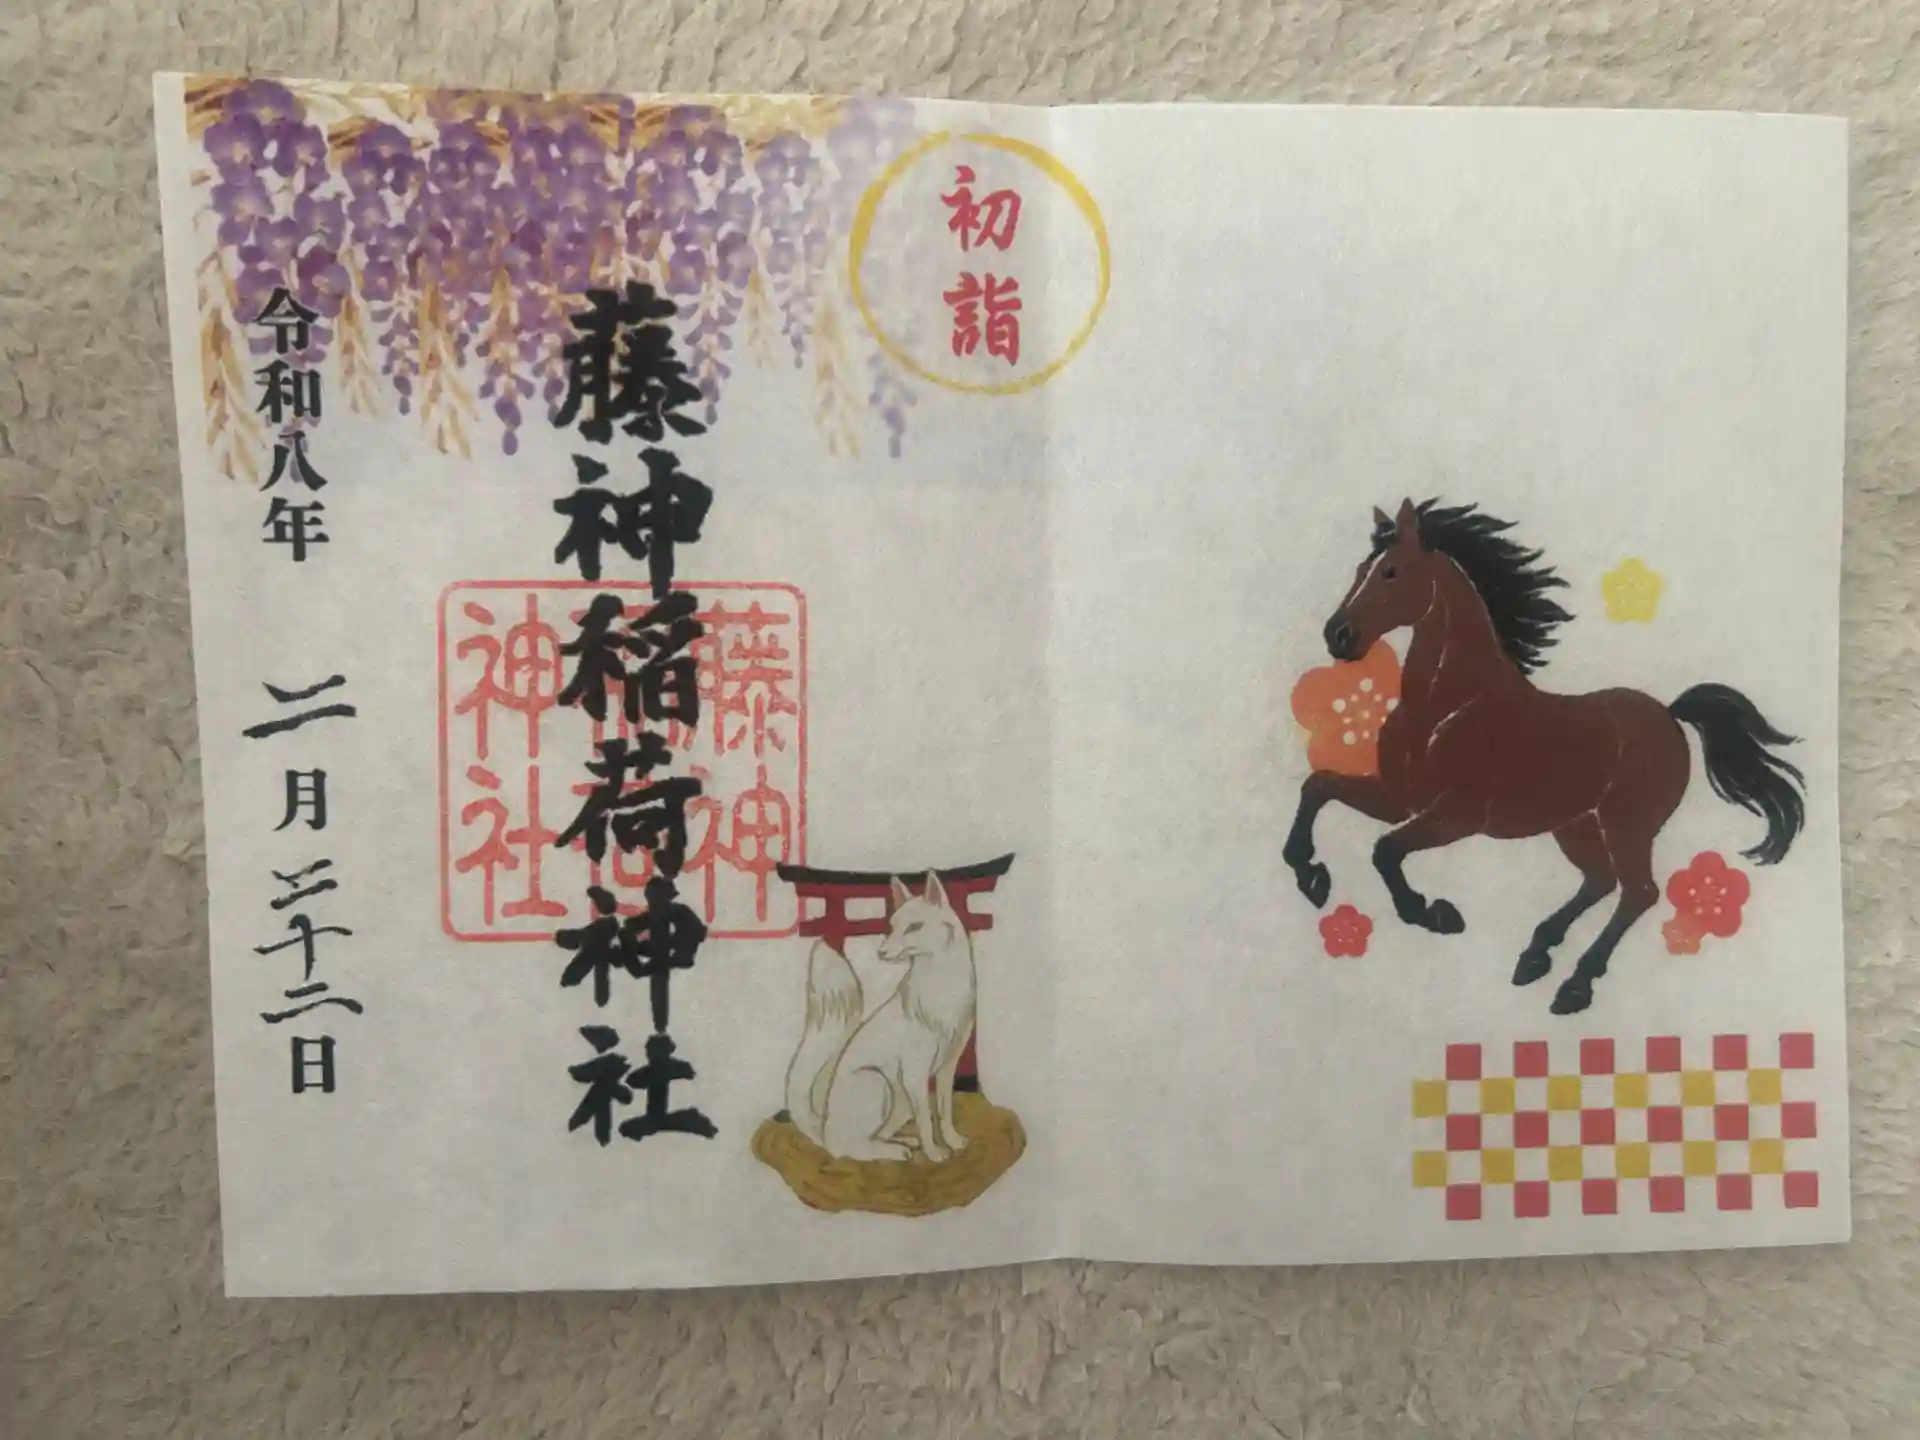 初詣
藤神稲荷神社
藤神
稲荷
神社
令和八年二月二十二日